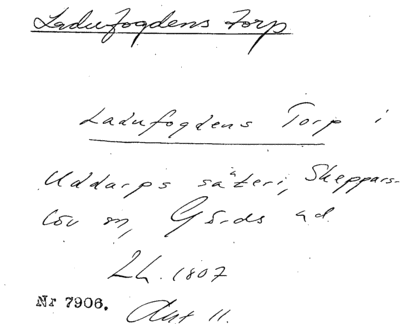 Ladufogdens Torp
Ladufogdens Torp i
Uddarps säteri, Skeppars-
löv sn, Gärds hd
Lh. 1807
Nr 7906. Akt 11.